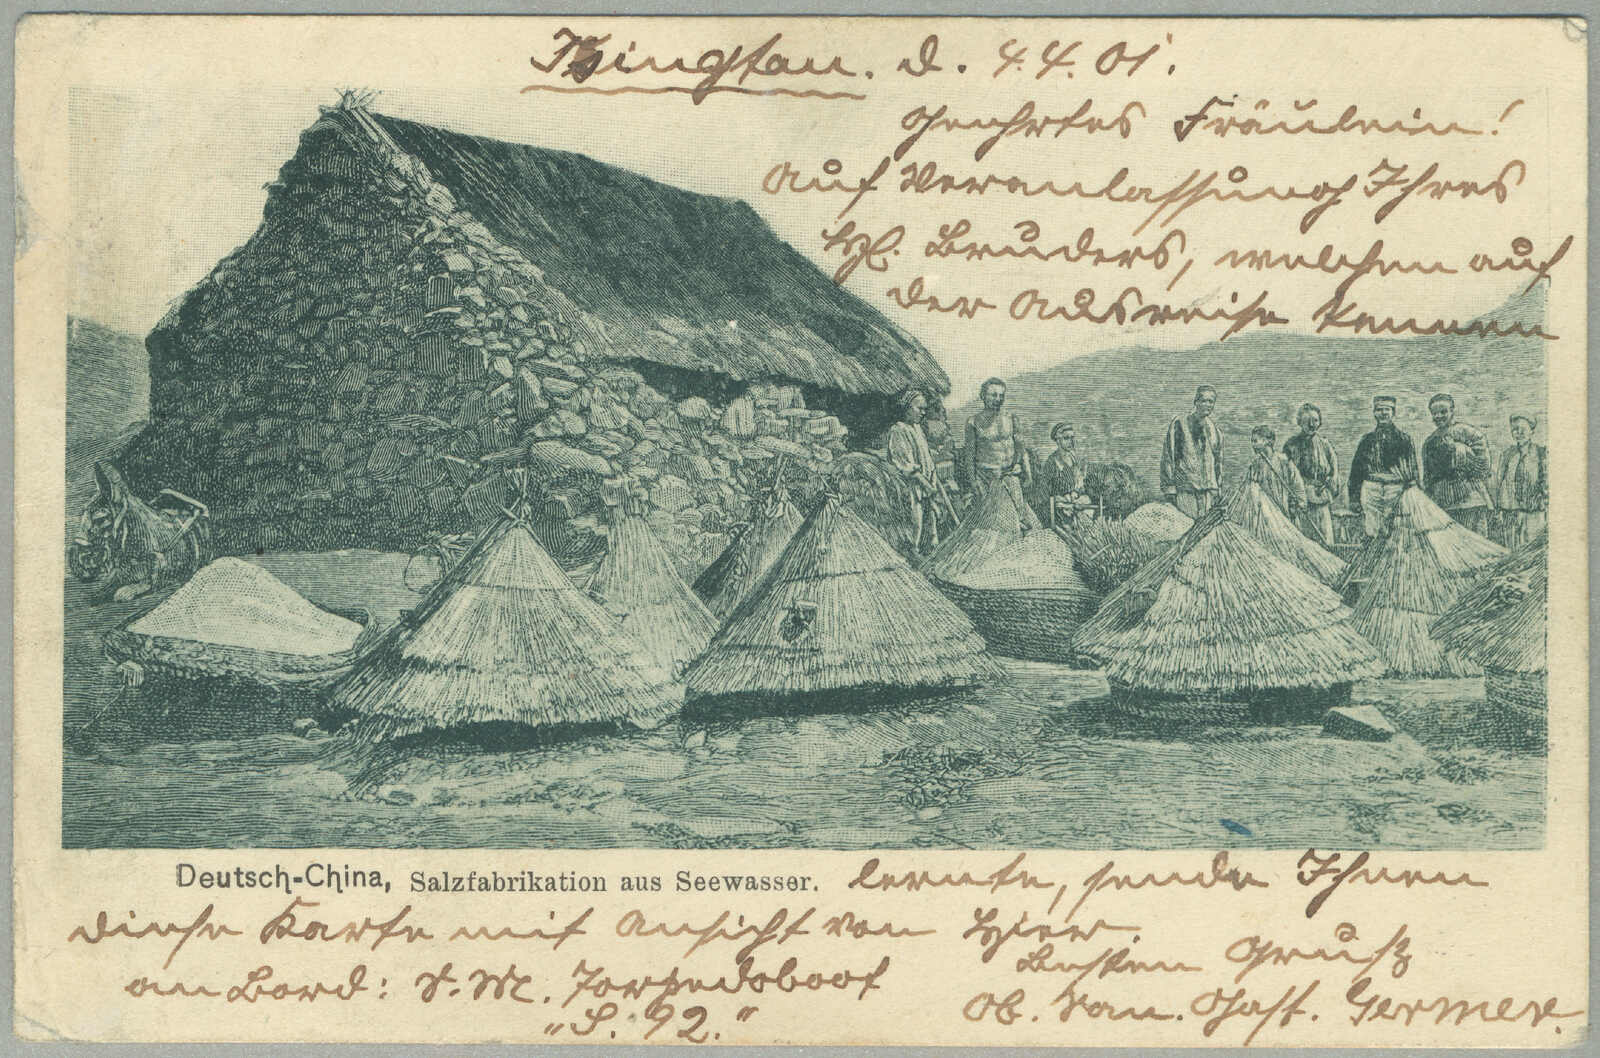 Tsingtau. d. 4.4.01.
Geehrtes Fräulein!
Auf Veranlassung Ihres
Bruders, welchen auf
der Ausreise kennen
Deutsch-China, Salzfabrikation aus Seewasser.
lernte, sende Ihnen
diese Karte mit Ansicht von hier.
Besten Gruß
an Bord: S. M. Torpedoboot
"S. 92."
Ob. San. Gast. Germer.